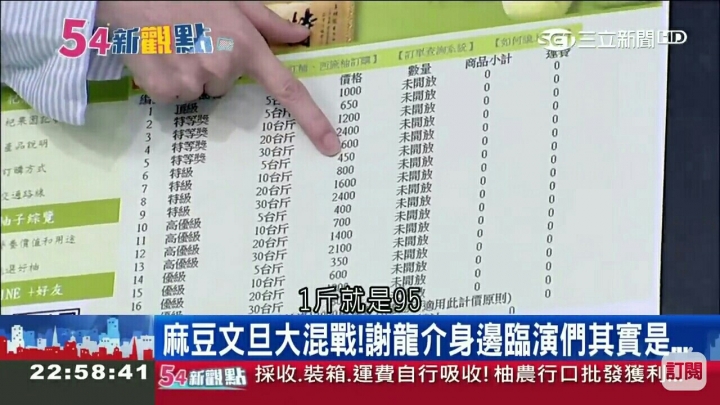 54新觀點
SET 三立新聞HD
【訂單查詢系統】
價格
數量
商品小計
運費
1 頂級 5台斤 1000 未開放 0 0
2 特等獎 650 未開放 0 0
3 特等獎 10台斤 1200 未開放 0 0
4 特等獎 20台斤 2400 未開放 0 0
5 特等獎 30台斤 600 未開放 0 0
6 特級 5台斤 450 未開放 0 0
7 特級 10台斤 800 未開放 0 0
8 特級 20台斤 1600 未開放 0 0
9 特級 30台斤 2400 未開放 0 0
10 高優級 5台斤 400 未開放 0 0
11 高優級 10台斤 700 未開放 0 0
12 高優級 20台斤 1400 未開放 0 0
13 高優級 30台斤 2100 未開放 0 0
14 優級 5台斤 350 未開放 0 0
15 優級 10台斤 600 未開放 0 0
16 優級 20台斤 未開放 0 0
30台斤
產品說明
訂購方式
交通路線
柚子綜覽
營養價值和用途
挑選好柚
LINE +好友
適用此計價原則)
1斤就是95
麻豆文旦大混戰!謝龍介身邊臨演們其實是...
22:58:41
54新觀點
採收.裝箱.運費自行吸收!柚農行口批發獲利
訂閱